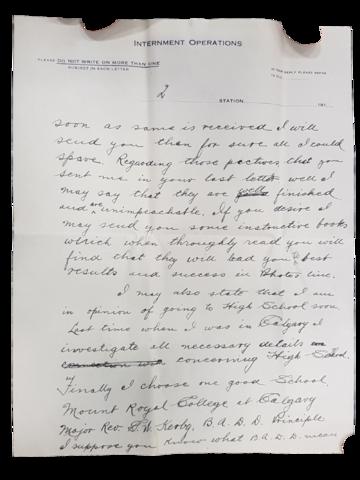 INTERNMENT OPERATIONS
PLEASE DO NOT WRITE ON MORE THAN ONE
SUBJECT IN EACH LETTER
IN YOUR REPLY PLEASE REFER
TO FILE
2
STATION 191
soon as same is received I will
send you than for sure all I could
spare. Regarding those pectives that you
sent me in your last letter well I
may say that they are well finished
and are unimpeachable. If you desire I
may send you some instructive books
which when throughly read you will
find that they will lead you to best
results and success in Photos line.
I may also state that I am
in opinion of going to High School soon
Last time when I was in Calgary I
investigate all necessary details
connection with concerning High School.
Finally I choose one good School,
Mount Royal College at Calgary
Major Rev. G. W. Kerby, B. A. D. D. Principle
I suppose you know what B. A. D. D. mean